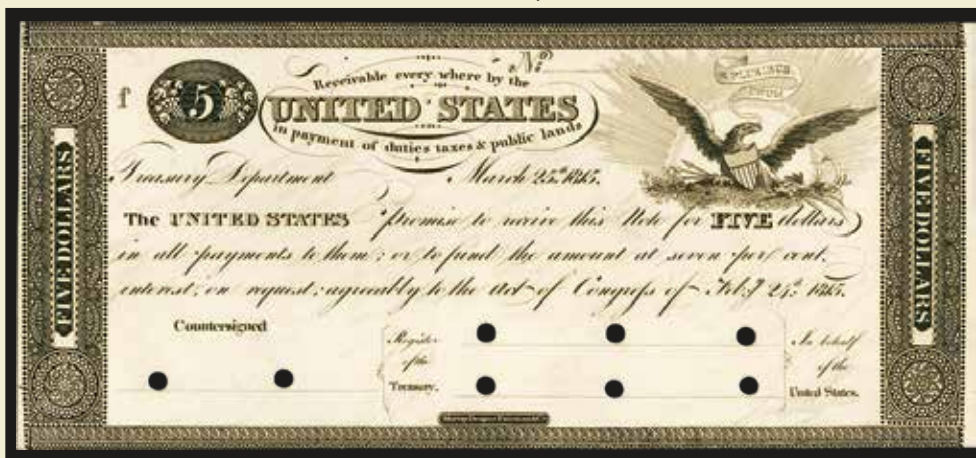 No.
f 5
Receivable every where by the
UNITED STATES
in payment of duties taxes & public lands
E PLURIBUS
UNUM
Treasury Department March 25th. 1815.
The UNITED STATES promise to receive this Note for FIVE dollars
in all payments to them; or to fund the amount at seven per cent.
interest, on request, agreeably to the Act of Congress of Feb:y 24th. 1815.
FIVE DOLLARS
FIVE DOLLARS
Countersigned
Register
of the
Treasury.
In behalf
of the
United States.